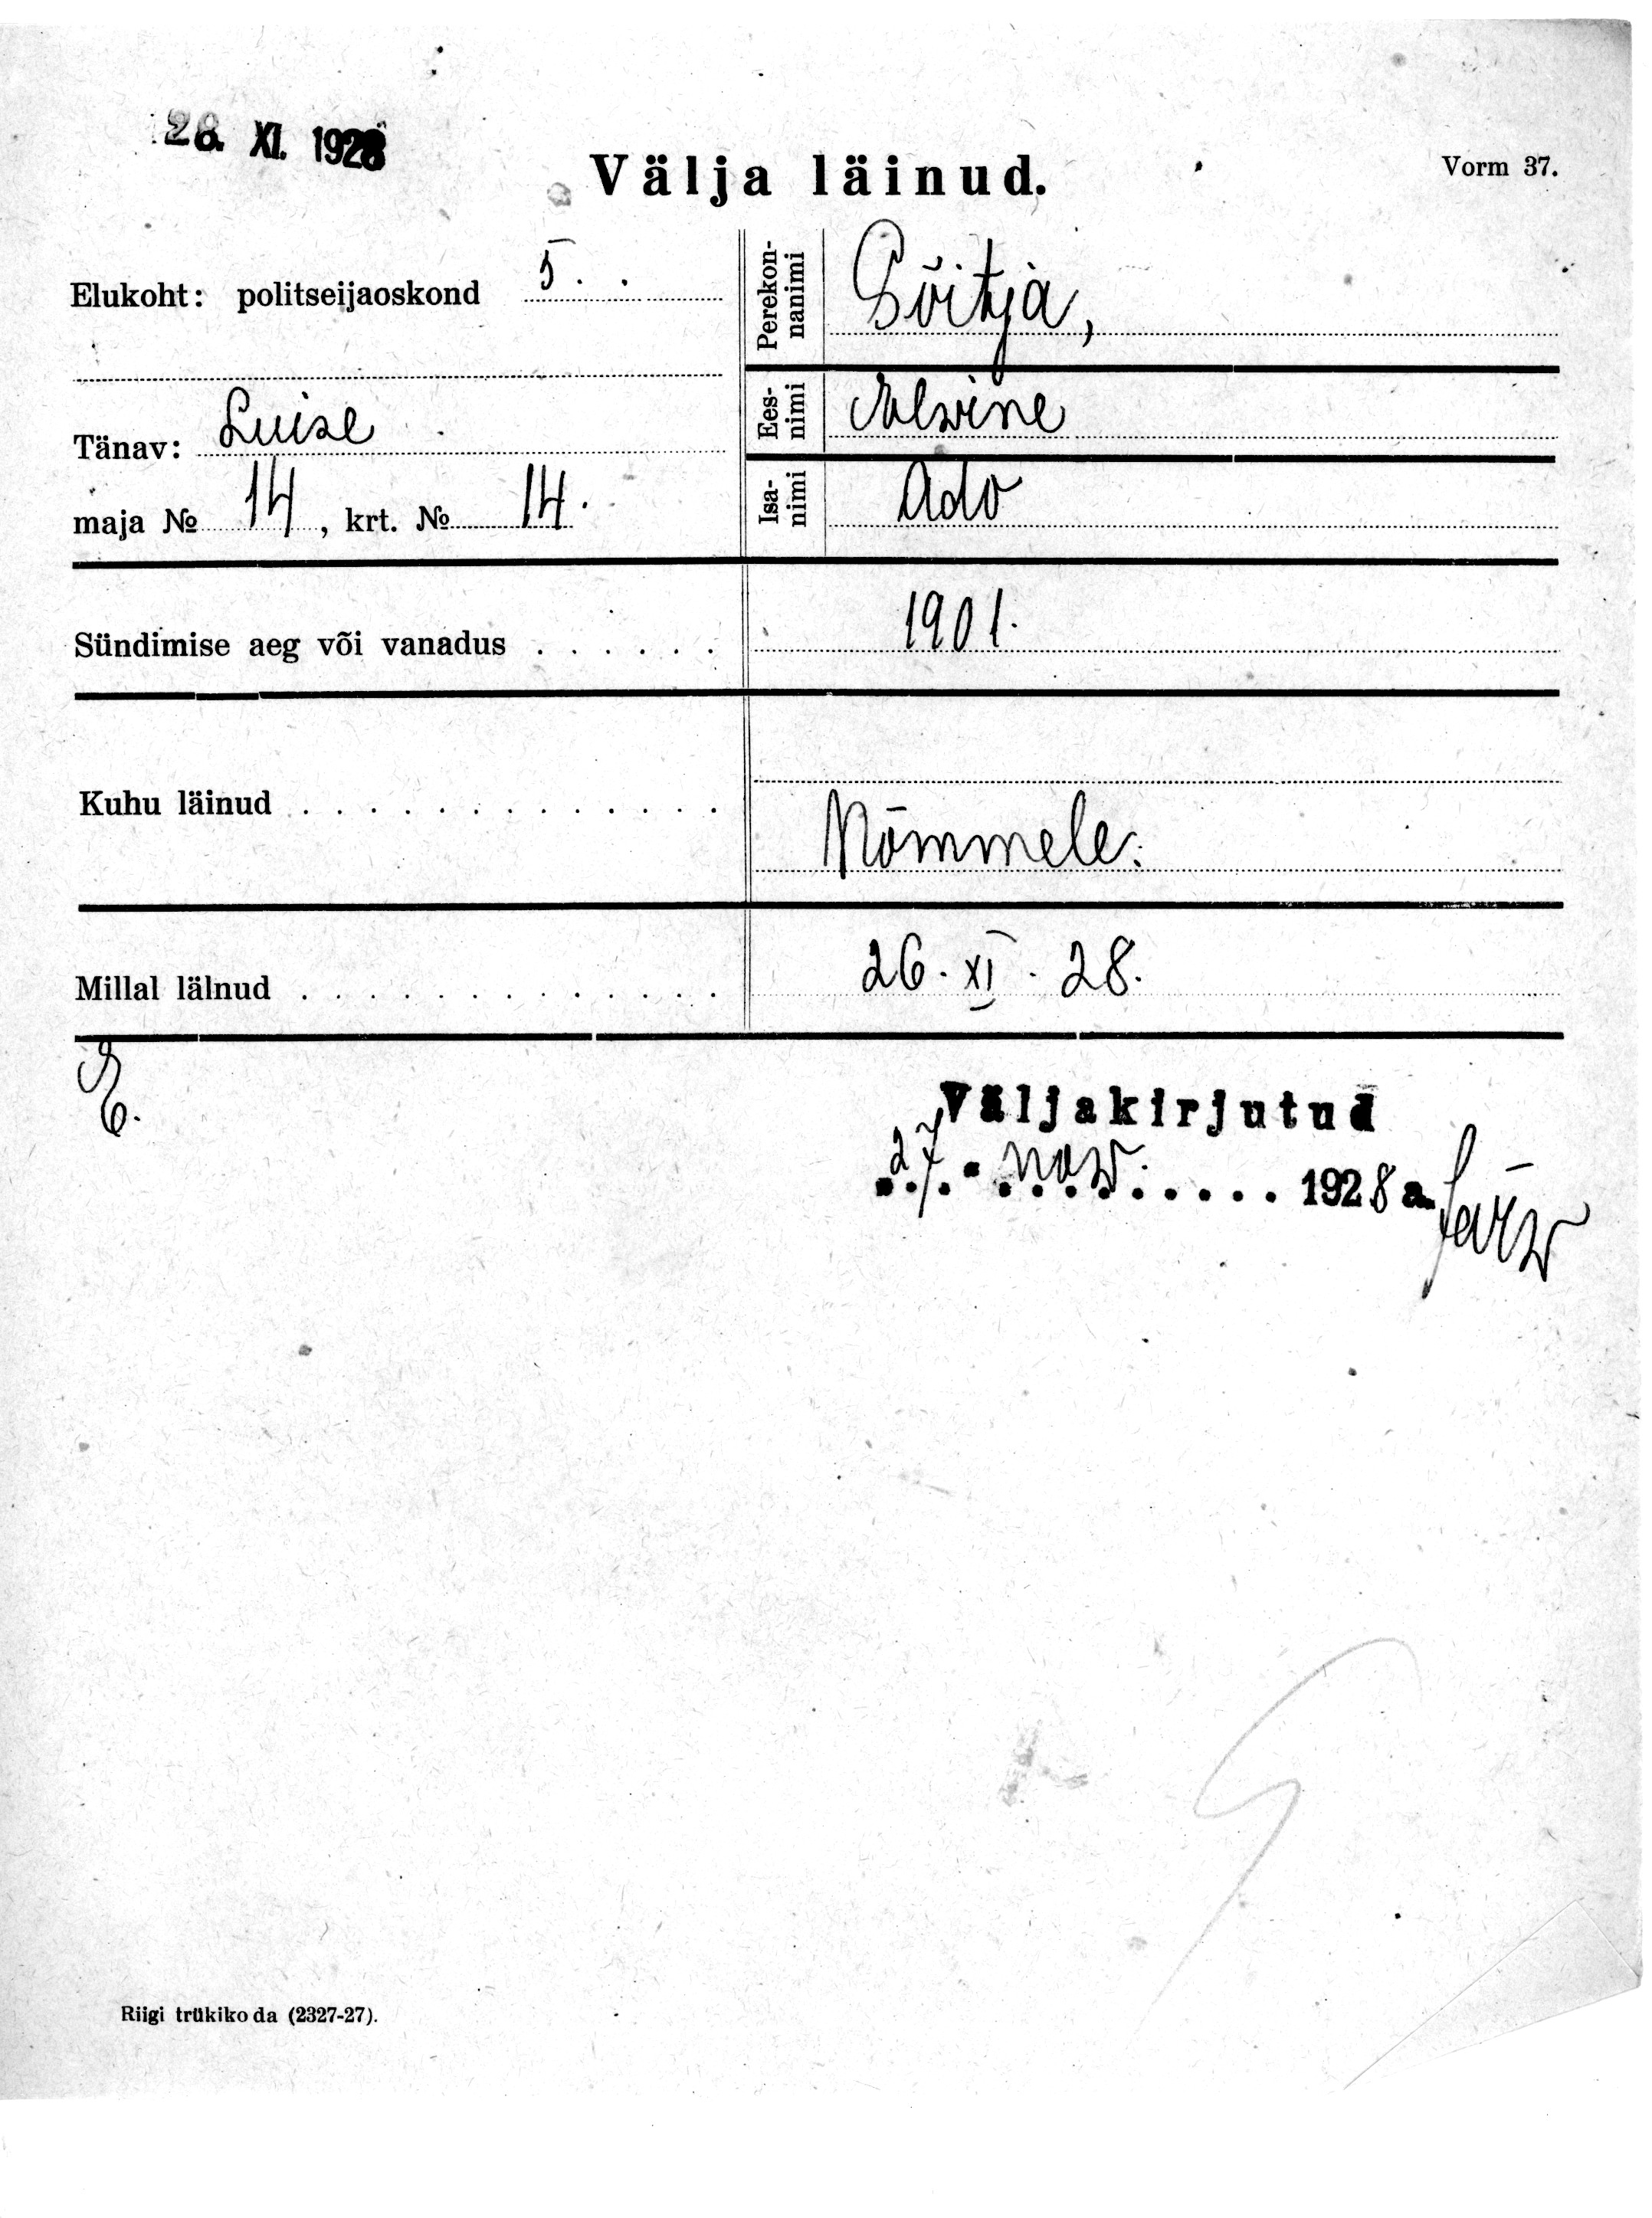 28. XI. 1928
Välja läinud.
Vorm 37.
Elukoht: politseijaoskond 5.
Tänav: Luise
maja № 14, krt. № 14.
Perekon-
nanimi
Sõitja,
Ees-
nimi
Alwine
Isa-
nimi
Ado
Sündimise aeg või vanadus . . . . . . 1901.
Kuhu läinud . . . . . . . . . . . . . Nõmmele.
Millal läinud . . . . . . . . . . . . . 26. XI. 28.
E.
Väljakirjutud
27. now. 1928 a.
Riigi trükikoda (2327-27).